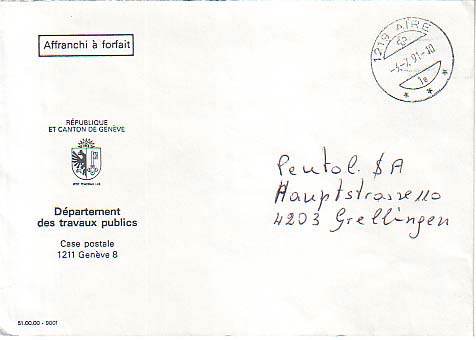 Affranchi à forfait
1219 AÏRE
RÉPUBLIQUE
ET CANTON DE GENÈVE
Département
des travaux publics
Case postale
1211 Genève 8
Pentol. SA
Hauptstrasse 110
4203 Grellingen
51.00.00 - 9001